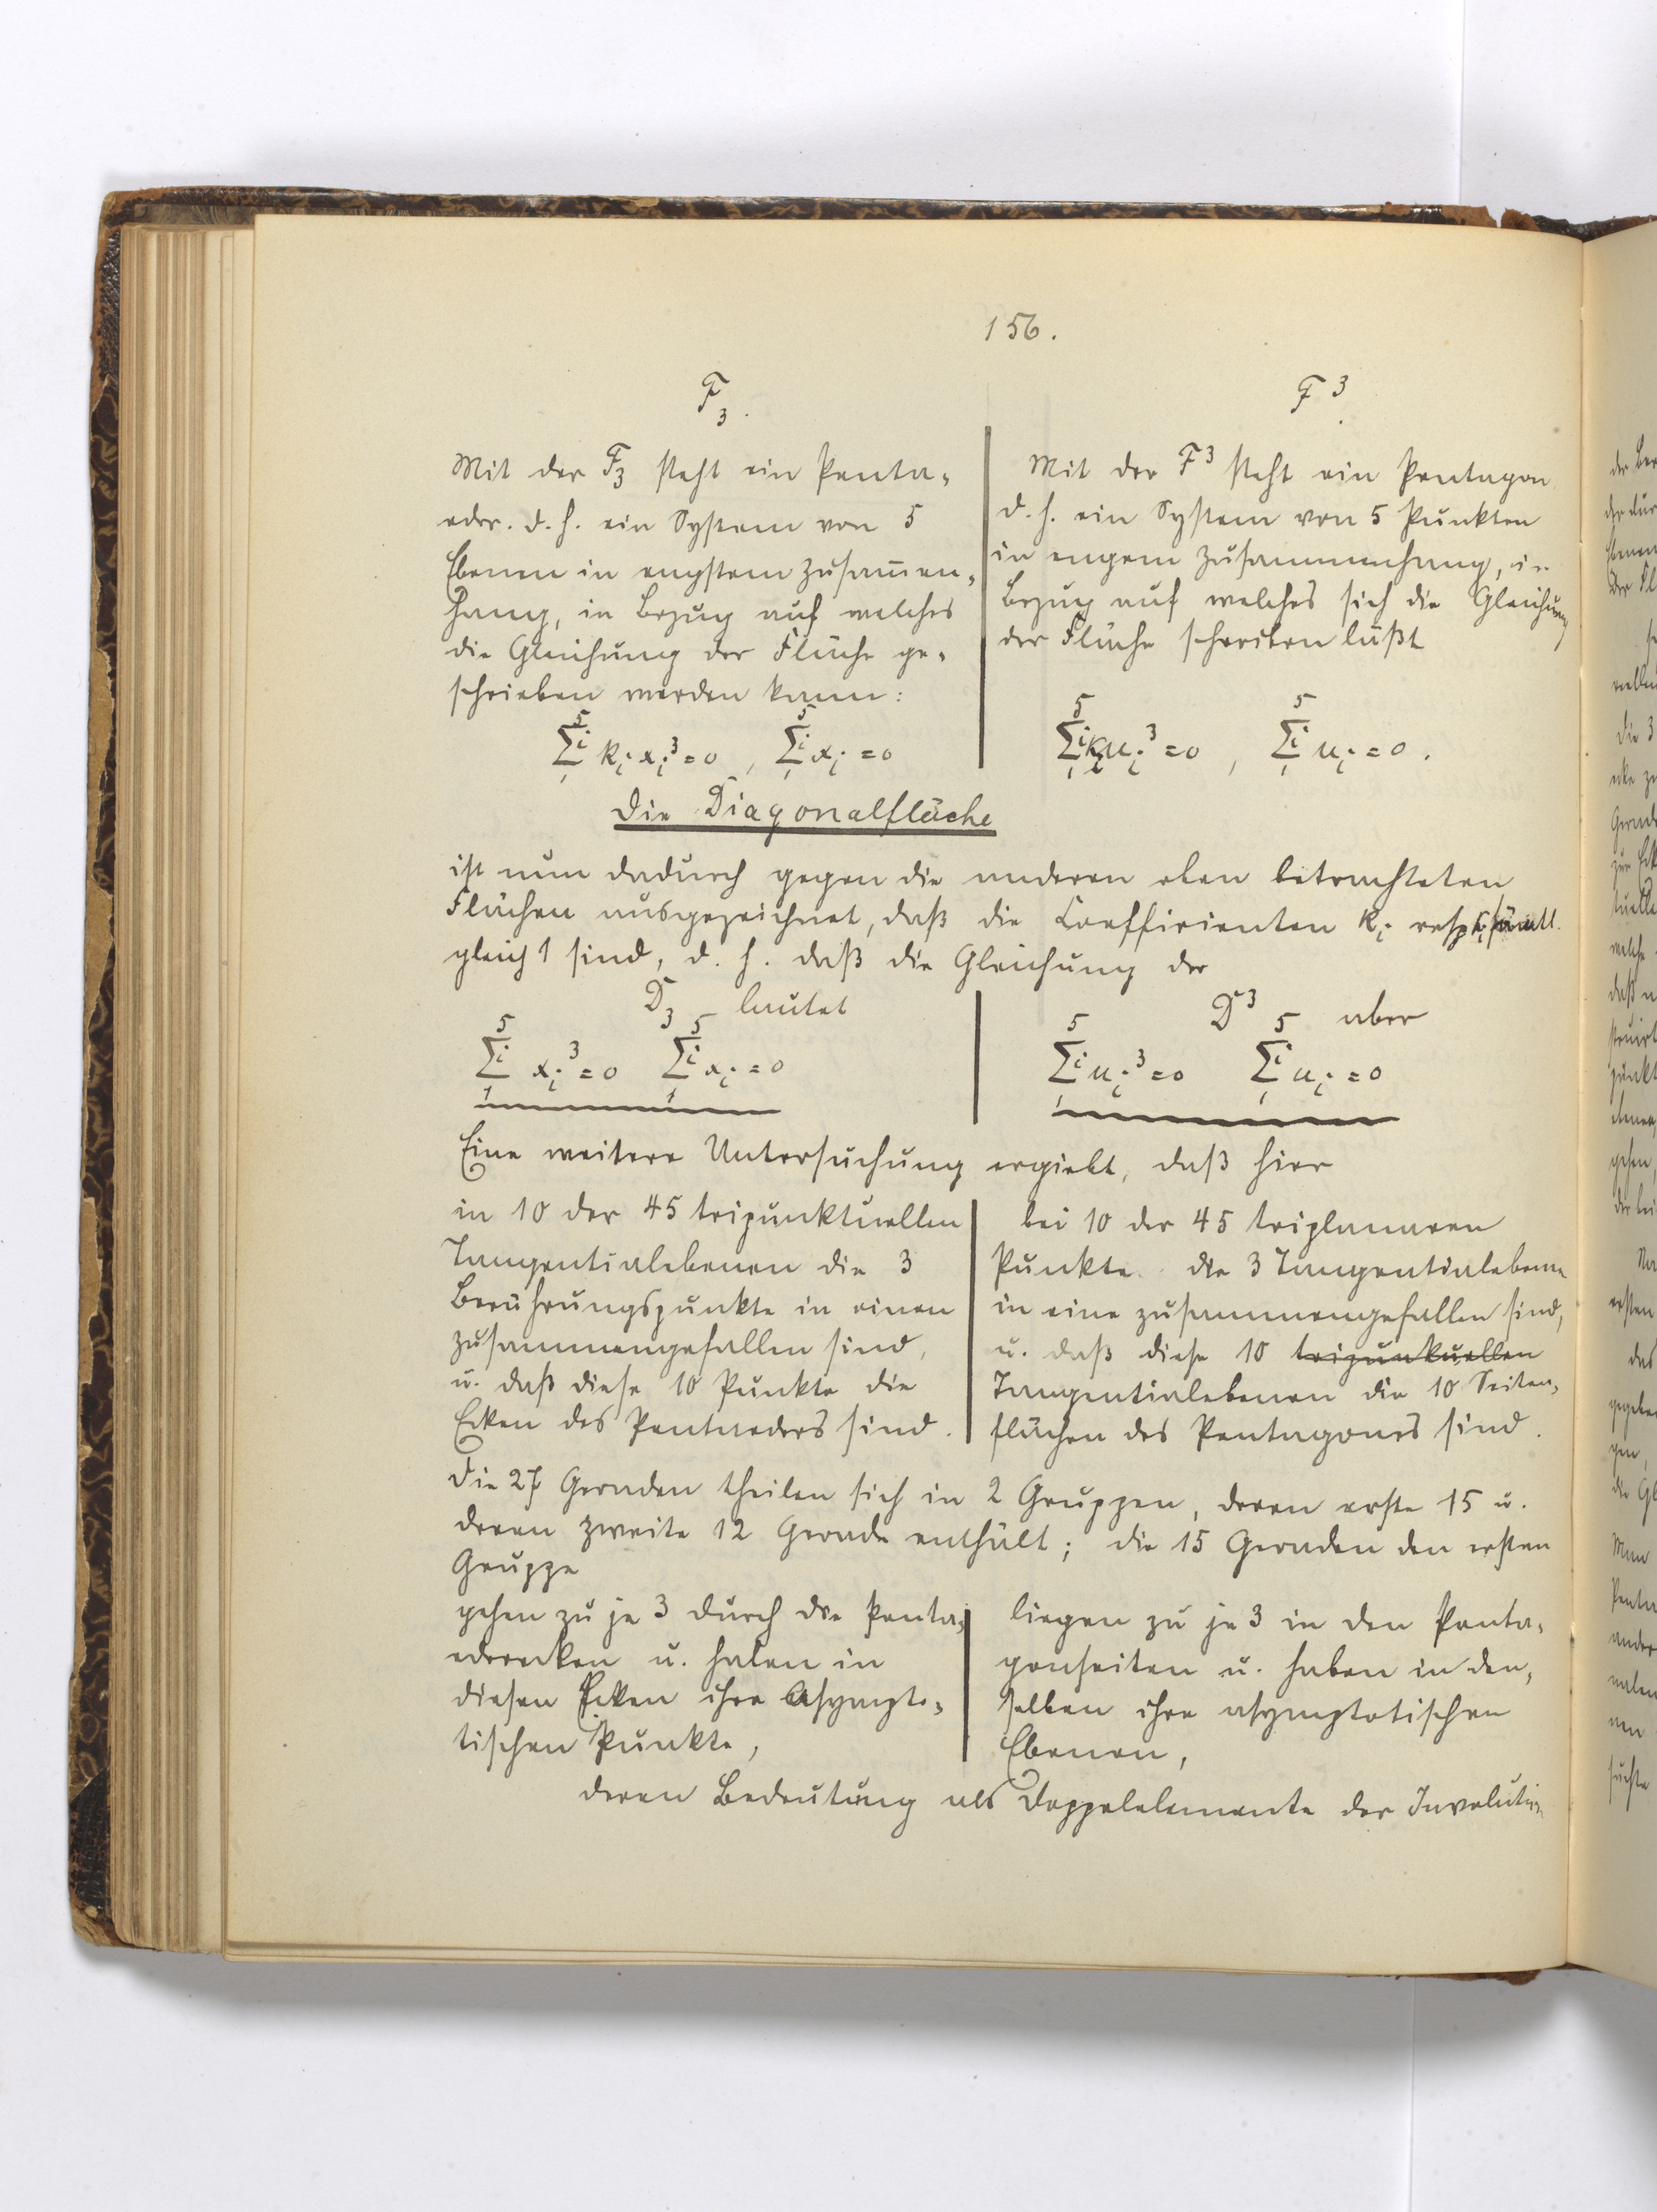 156.
F₃.
Mit der F₃ steht ein Penta-
eder. d. h. ein System von 5
Ebenen in engstem Zusam̅en-
hang, in Bezug auf welches
die Gleichung der Fläche ge-
schrieben werden kann:
∑₁⁵ᵢ kᵢ xᵢ³ = 0, ∑₁⁵ᵢ xᵢ = 0
F³
Mit der F³ steht ein Pentagon
d. h. ein System von 5 Punkten
in engem Zusammenhang, in
Bezug auf welches sich die Gleichung
der Fläche schreiben läßt
∑₁⁵ᵢ kᵢ uᵢ³ = 0, ∑₁⁵ᵢ uᵢ = 0.
Die Diagonalfläche
ist nun dadurch gegen die anderen eben betrachteten
Flächen ausgezeichnet, daß die Coefficienten kᵢ resp. sämtl.
gleich 1 sind, d. h. daß die Gleichung der
D₃ lautet
∑₁⁵ᵢ xᵢ³ = 0 ∑₁⁵ᵢ xᵢ = 0
D³ aber
∑₁⁵ᵢ uᵢ³ = 0 ∑₁⁵ᵢ uᵢ = 0
Eine weitere Untersuchung ergiebt, daß hier
in 10 der 45 tripunktuellen
Tangentialebenen die 3
Berührungspunkte in einen
zusammengefallen sind,
u. daß diese 10 Punkte die
Ecken des Pentaeders sind.
bei 10 der 45 triplanaren
Punkte die 3 Tangentialebenen
in eine zusammengefallen sind,
u. daß diese 10 tripunkuellen
Tangentialebenen die 10 Seiten-
flächen des Pentagones sind.
Die 27 Geraden theilen sich in 2 Gruppen, deren erste 15 u.
deren zweite 12 Gerade enthält; die 15 Geraden den ersten
Gruppe
gehen zu je 3 durch die Penta-
ederecken u. haben in
diesen Ecken ihre Asympto-
tischen Punkte,
liegen zu je 3 in den Penta-
gonseiten u. haben in den-
selben ihre asymptotischen
Ebenen,
deren Bedeutung als Doppelelemente der Involution